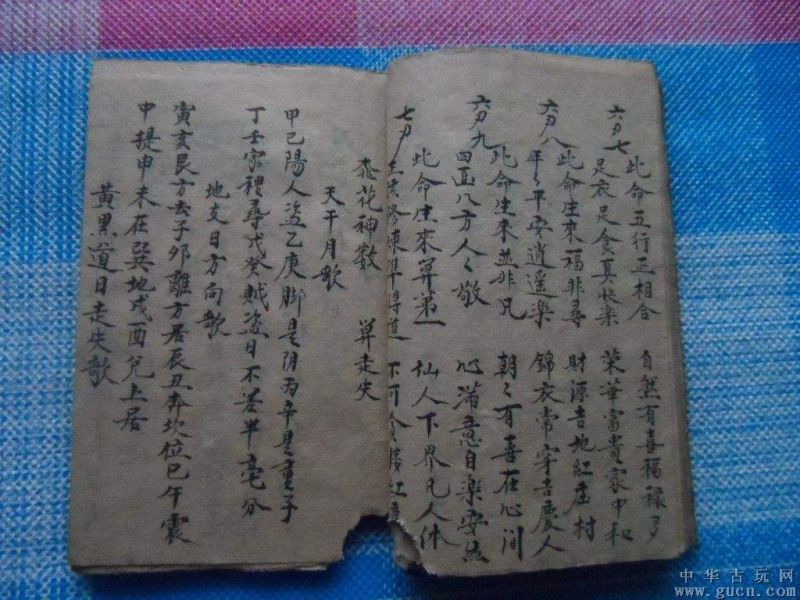 六刀七
此命五行正相合 自然有喜福禄多
足衣足食真快樂 榮華富貴家中和
六刀八
此命生來福非尋 財源吉地紅屋村
年々平安逍遥樂 錦衣常穿吉慶人
六刀九
此命生來並非凡 朝々有喜在心间
四面八方人々敬 心满意自樂安然
七刀
此命生來算第一 仙人下界凡人体
準得道 不可貪 紅
花神数 算走失
天干月歌
甲己陽人盗乙庚脚是阴丙辛是童子
丁壬家裡尋戊癸贼盗日不差半毫分
地支日方向歌
寅亥艮方去子卯離方居辰丑奔坎位巳午震
中提申未在巽地戌酉兌上居
黃黑道日走失歌
中华古玩网
www.gucn.com